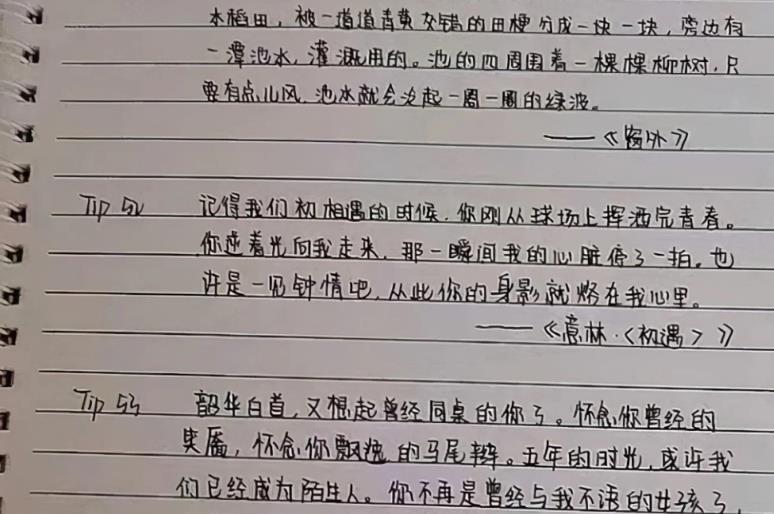 本稻田，被一道道青黄交错的田梗分成一块一块，旁边有
一潭池水，灌溉用的。池的四周围着一棵棵柳树，只
要有点儿风，池水就会泛起一圈一圈的绿波。
——《窗外》
Tip 52 记得我们初相遇的时候，你刚从球场上挥洒完青春。
你逆着光向我走来，那一瞬间我的心脏停了一拍。也
许是一见钟情吧，从此你的身影就烙在我心里。
——《意林·<初遇>》
Tip 53 韶华白首，又想起曾经同桌的你了。怀念你曾经的
笑靥，怀念你飘逸的马尾辫。五年的时光，或许我
们已经成为陌生人。你不再是曾经与我不语的女孩了，